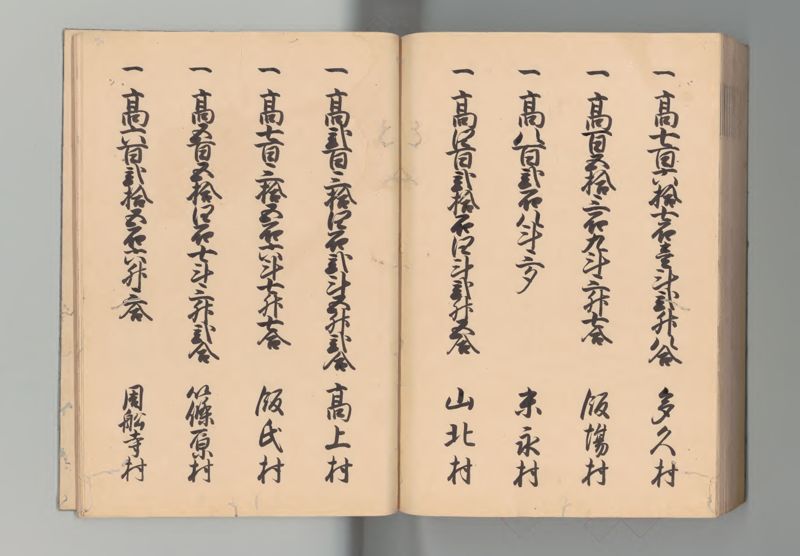 一 高七百六拾七石壱斗弐升八合 多久村
一 高百五拾三石九斗三升七合 飯場村
一 高八百弐石八斗三夕 末永村
一 高四百弐拾石四斗弐升五合 山北村
一 高弐百三拾四石弐斗五升弐合 高上村
一 高七百三拾五石六斗七升七合 飯氏村
一 高五百五拾四石七斗三升弐合 篠原村
一 高六百弐拾五石六升三合 周船寺村